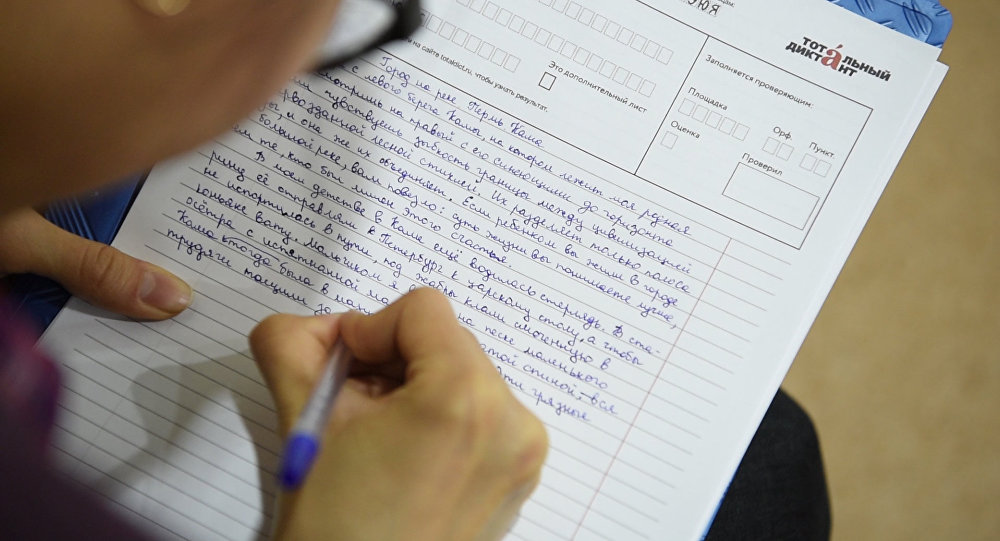 УЮЯ
тотальный
диктант
Заполняется проверяющим:
Площадка
Орф.
Пункт.
Оценка
Проверил
Это дополнительный лист
на сайте totaldict.ru, чтобы узнать результат.
Город на реке Пермь Кама
с левого берега Камы, на котором лежит моя родная
смотришь на правый с его синеющими до горизонта
чувствуешь зыбкость границы между цивилизацией
первозданной лесной стихией. Их разделяет только полоса
и она же их объединяет. Если ребенком вы жили в городе
большой реке, вам повезло: суть жизни вы понимаете лучше,
те, кто был лишен этого счастья
В моем детстве в Каме ещё водилась стерлядь. В ста-
рину её отправляли к Петербург к царскому столу, а чтобы
не испортилась в пути, под жабры клали смоченную в
коньяке вату. Мальчиком я на песке маленького
осётра с испятнанной спиной, вся
Кама когда была в
трудяги тащили грязные